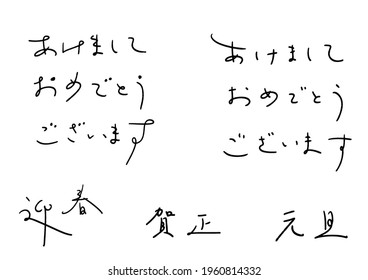 あけまして
おめでとう
ございます
あけまして
おめでとう
ございます
迎春
賀正
元旦
shutterstock.com · 1960814332